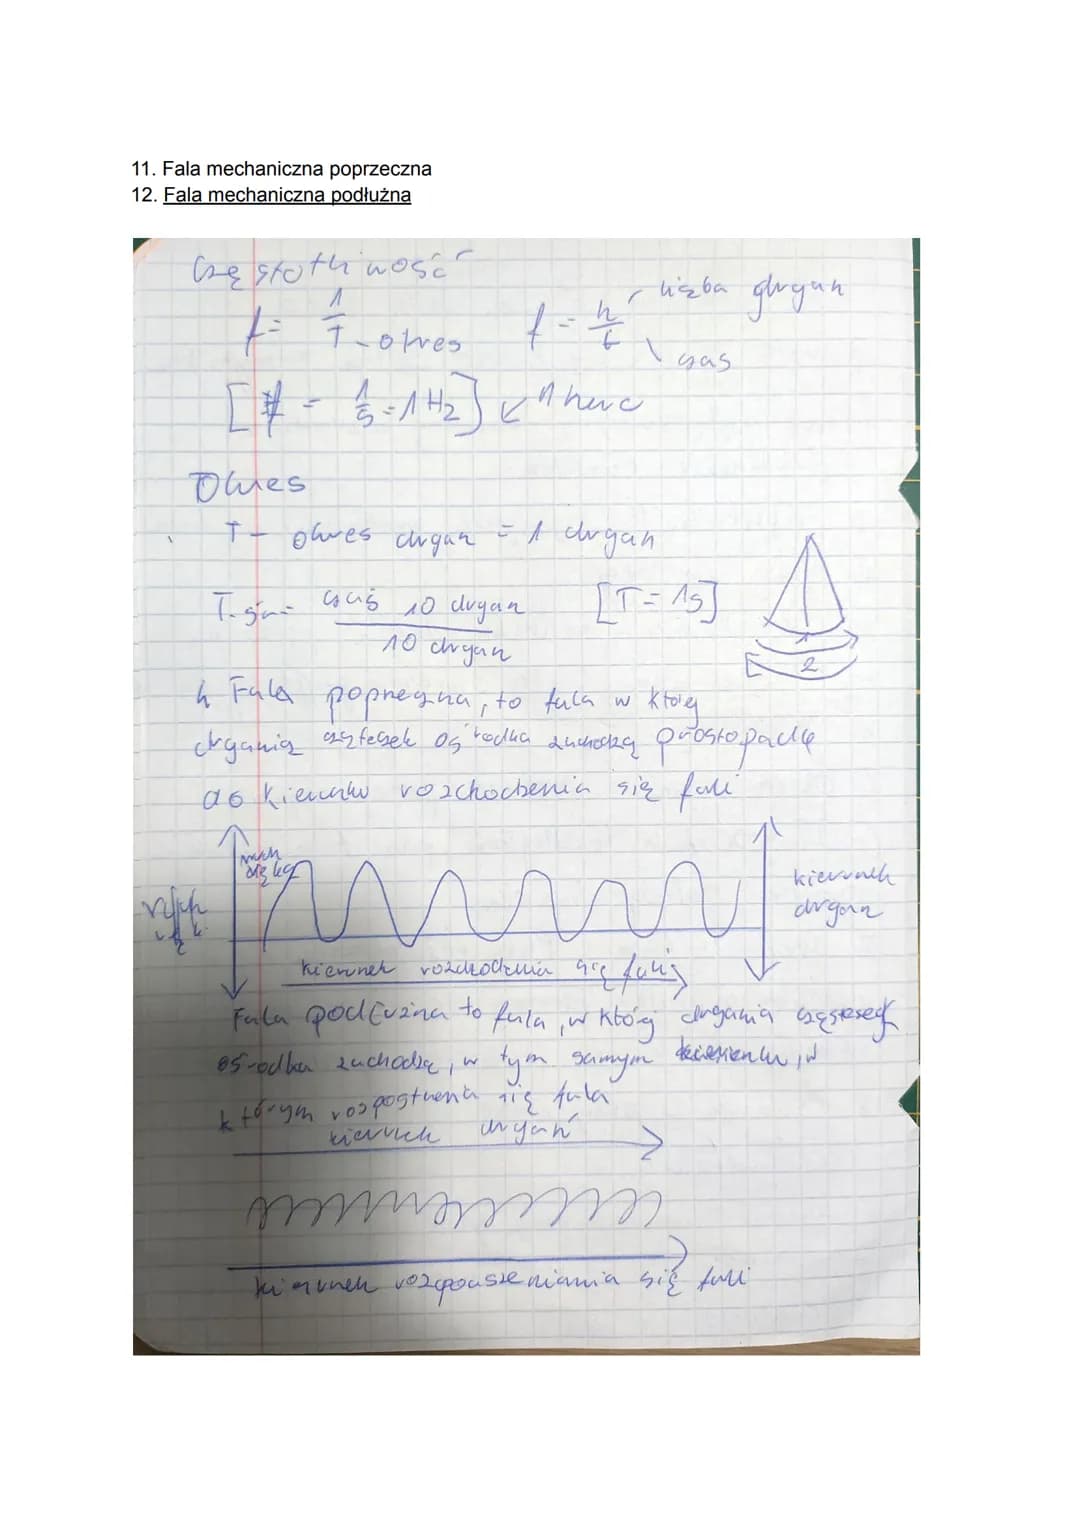 11. Fala mechaniczna poprzeczna
12. Fala mechaniczna podłużna
Częstotliwość
f = 1/T - okres f = n/t liczba drgań
czas
= 1/s = 1 Hz] ↙ 1 herc
Okres
T - okres drgań = 1 drgań
T. śr = czas 10 drgań / 10 drgań [T = 1s]
1
2
Fala poprzeczna, to fala w której
drgania cząsteczek ośrodka zachodzą prostopadle
do kierunku rozchodzenia się fali
ruch
kierunek
drgań
kierunek rozchodzenia się fali
Fala podłużna to fala, w której drgania cząsteczek
ośrodka zachodzą, w tym samym kierunku, w
którym rozpostrzenia się fala
kierunek drgań
kierunek rozpouszeniania się fali